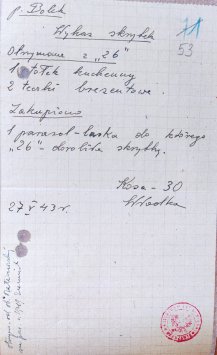 p. Bolek
71
Wykaz skrytek
53
Otrzymane z „26"
1 stołek kuchenny
2 teczki brezentowe.
Zakupiono
1 parasol-laska do którego
„26" - dorobiła skrytkę.
Kosa - 30
Władka
27 V 43 r.